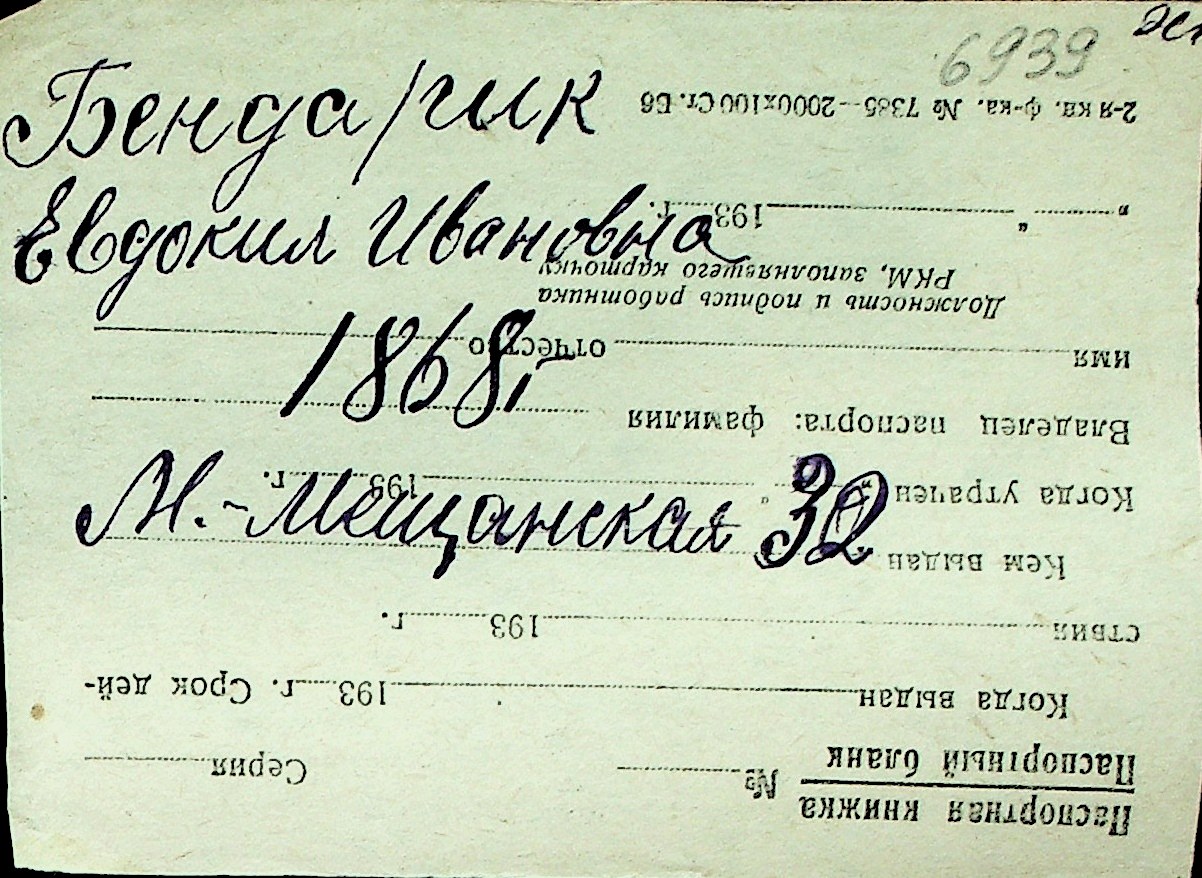 6939
Бендарик
Евдокия Ивановна
1868 г
М.-Мещанская 32
Паспортная книжка
Паспортный бланк
№ Серия
Когда выдан 193 г. Срок дей-
ствия 193 г.
Кем выдан
Когда утрачен „ “ 193 г.
Владелец паспорта: фамилия
имя отчество
Должность и подпись работника
РКМ, заполнявшего карточку
„ “ 193 г.
2-я кв. ф-ка. № 7385—2000х100 Ст. Б6